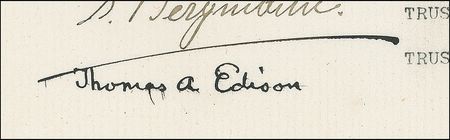 S. Bergmann.
TRUS
TRUS
Thomas A Edison